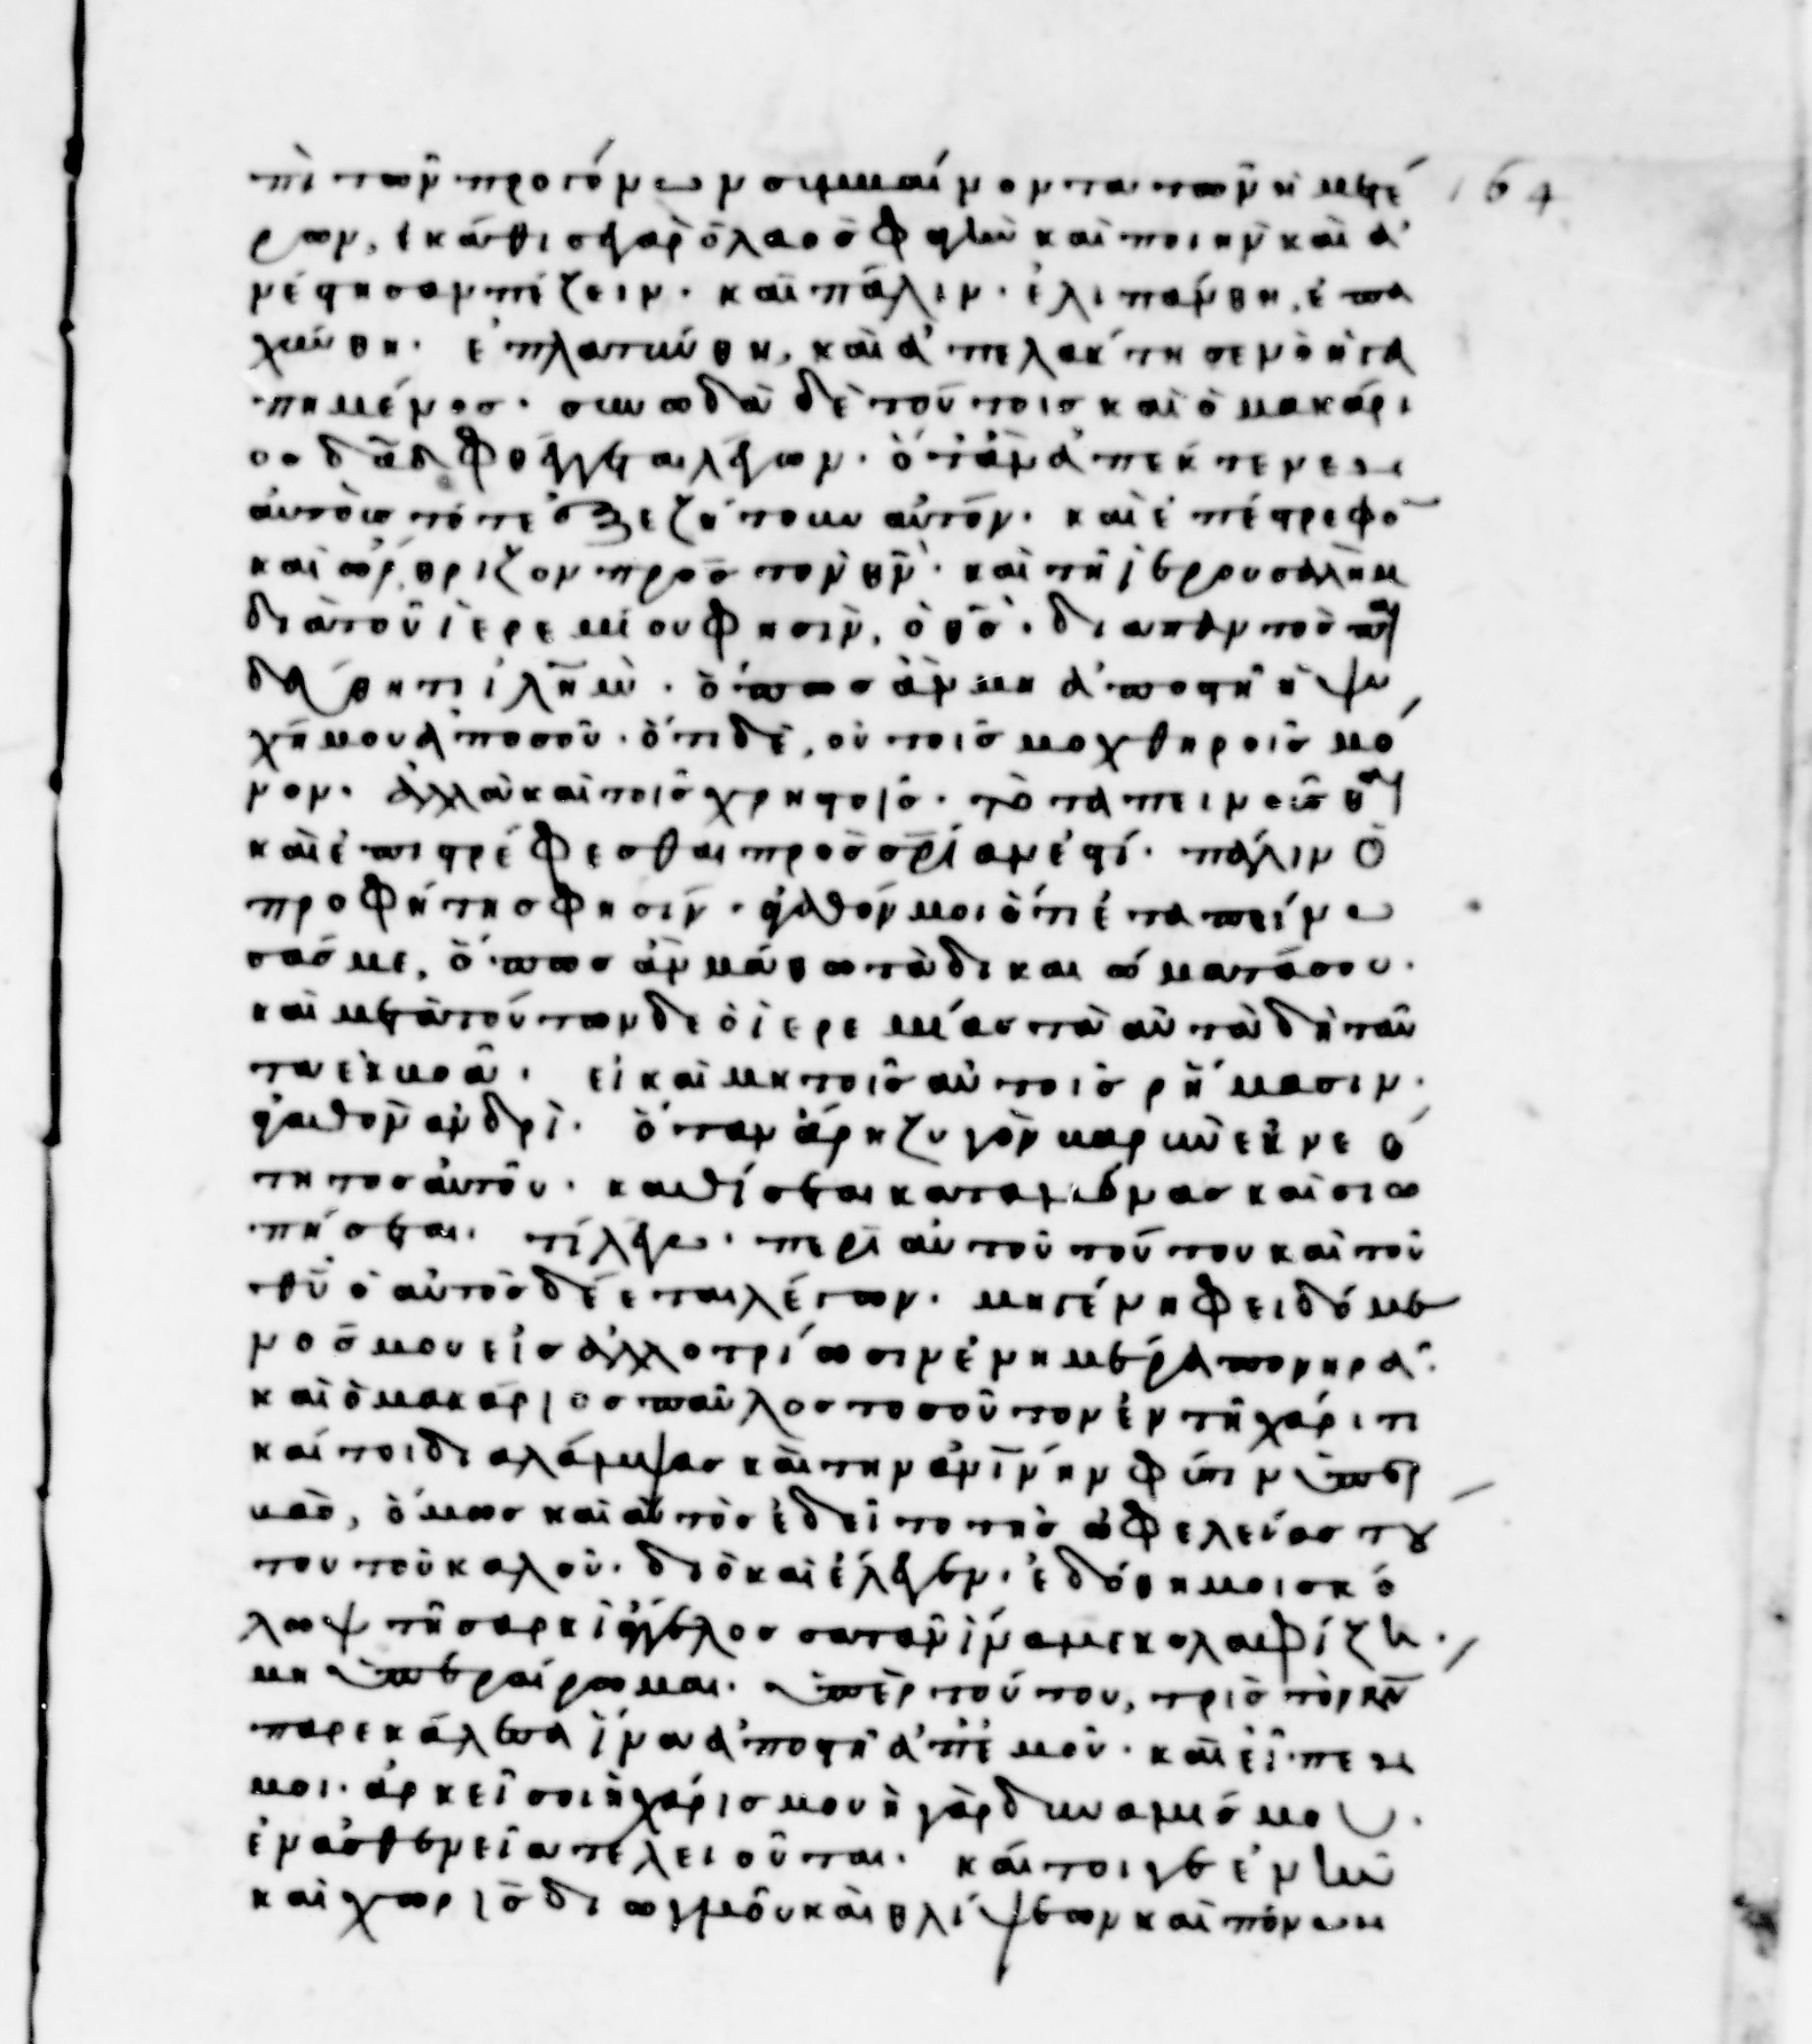 πὶ τῶν προγόνων σημαίνοντα τῶν ἡμετέ 164
ρων, ἐκάθισε γὰρ ὁ λαὸς φησὶ καὶ πιεῖν καὶ ἀ
νέστησαν παίζειν. καὶ πάλιν. ἐλιπάνθη, ἐπα
χύνθη. ἐπλατύνθη, καὶ ἀπελάκτησεν ὁ ἠγα
πημένος. συνωδὰ δὲ τούτοις καὶ ὁ μακάρι
ος δᾶδ φθέγγεται λέγων. ὅταν ἀπέκτενεν
αὐτοὺς τότε ἐξεζήτουν αὐτόν. καὶ ἐπέστρεφο
καὶ ὤρθριζον πρὸς τὸν θν. καὶ τῆ ἱερουσαλὴμ
διὰ τοῦ ἱερεμίου φησὶν, ὁ θς. διὰ παντὸς παι
δευθήτι ιλημ. ὅπως ἂν μὴ ἀποστῆ ἡ ψυ
χή μου ἀπὸ σοῦ. ὅτι δὲ, οὐ τοῖς μοχθηροῖς μό
νον. ἀλλὰ καὶ τοῖς χρηστοῖς. τὸ ταπεινοῦσθαι
καὶ ἐπιστρέφεσθαι πρὸς σρίαν ἐστί. πάλιν ὁ
προφήτης φησίν. ἀγαθόν μοι ὅτι ἐταπείνω
σάς με, ὅπως ἂν μάθω τὰ δικαιώματά σου.
καὶ μετὰ τούτων δε ὁ ἱερεμίας τὰ αὐτὰ δὴ ταῦ
τα ἐκβοᾶ. εἰ καὶ μὴ τοῖς αὐτοῖς ῥήμασιν.
ἀγαθὸν ἀνδρὶ. ὅταν ἄρη ζυγὸν βαρὺν ἐκ νεό
τητος αὐτοῦ. καθίσεται καταμόνας καὶ σιω
πήσεται. τί λέγω. περὶ αὐτοῦ τούτου καὶ τοῦ
θυ ὁ αὐτὸς δέεται λέγων. μὴ γένη φειδόμε
νός μου εἰς ἀλλοτρίωσιν ἐν ἡμέρα πονηρᾶ.
καὶ ὁ μακάριος παῦλος τοσοῦτον ἐν τῆ χάριτι
καίτοι διαλάμψας καὶ τὴν ἀνίνην φύσιν ὑπερ
βὰς, ὅμως καὶ αὐτὸς ἐδεῖτο τῆς ὠφελείας του
του τοῦ καλοῦ. διὸ καὶ ἔλεγεν. ἐδόθη μοι σκό
λοψ τῆ σαρκὶ ἄγγελος σατᾶν ἵνα με κολαφίζη.
μὴ ὑπεραίρωμαι. ὑπὲρ τούτου, τρὶς τὸν κν
παρεκάλεσα ἵνα ἀποστῆ ἀπ' ἐμοῦ. καὶ εἶπεν
μοι. ἀρκεῖ σοι ἡ χάρις μου ἡ γὰρ δύναμίς μου.
ἐν ἀσθενεία τελειοῦται. καίτοιγε ἐνῆν
καὶ χωρὶς διωγμοῦ καὶ θλίψεων καὶ πόνων